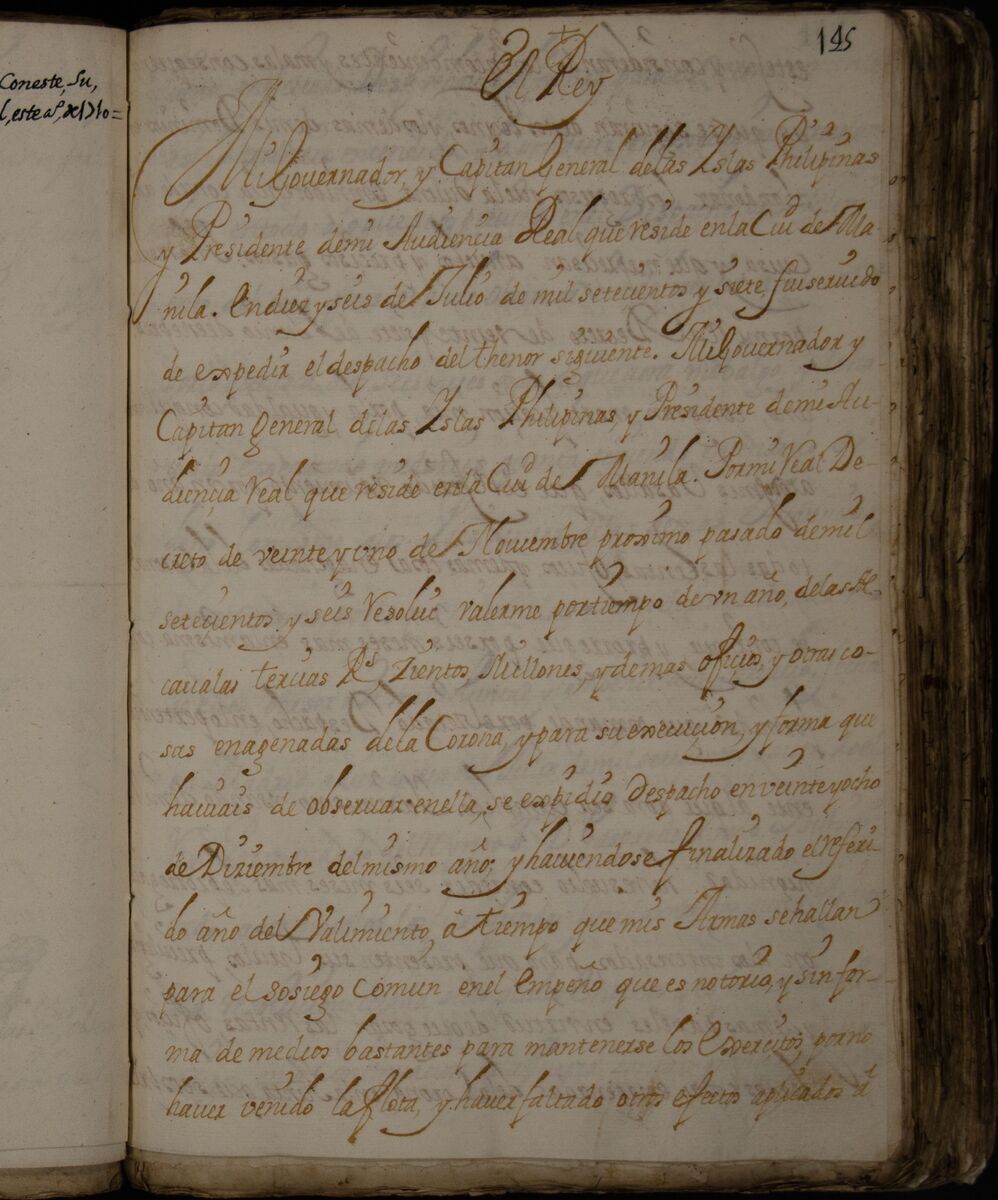 Coneste, Su,
l, este aº, de 1710=
145
El Rey
Mi Governador, y Capitan General delas Yslas Philipinas
y Presidente demi Audiencia Real que reside enla Ciud de Ma-
nila. En diez y seis de Julio de mil setecientos y siete, fui seruido
de expedir el despacho del thenor siguiente. Mi Governador y
Capitan General delas Yslas Philipinas, y Presidente demi Au-
diençia Real que reside enla Ciud de Manila. Por mi Real De-
creto de veinte y uno de Nouiembre proximo pasado demil
setecientos y seis Resolui valerme por tiempo de vn año, delas Al-
caualas tercias Rs Zientos, Millones, y demas oficios, y otras co-
sas enagenadas della Corona, y para su execuçion, y forma que
hauiais de observar enella, se expidio Despacho en veinte y ocho
de Diziembre del mismo año; y hauiendose finalizado el Referi-
do año del Valimiento, â tiempo que mis Armas se hallan
para el sosiego comun enel empeño que es notorio, y sin for-
ma de medios bastantes para mantenerse los Exercitos, por no
hauer venido la flota, y hauer faltado otros efectos aplicados â